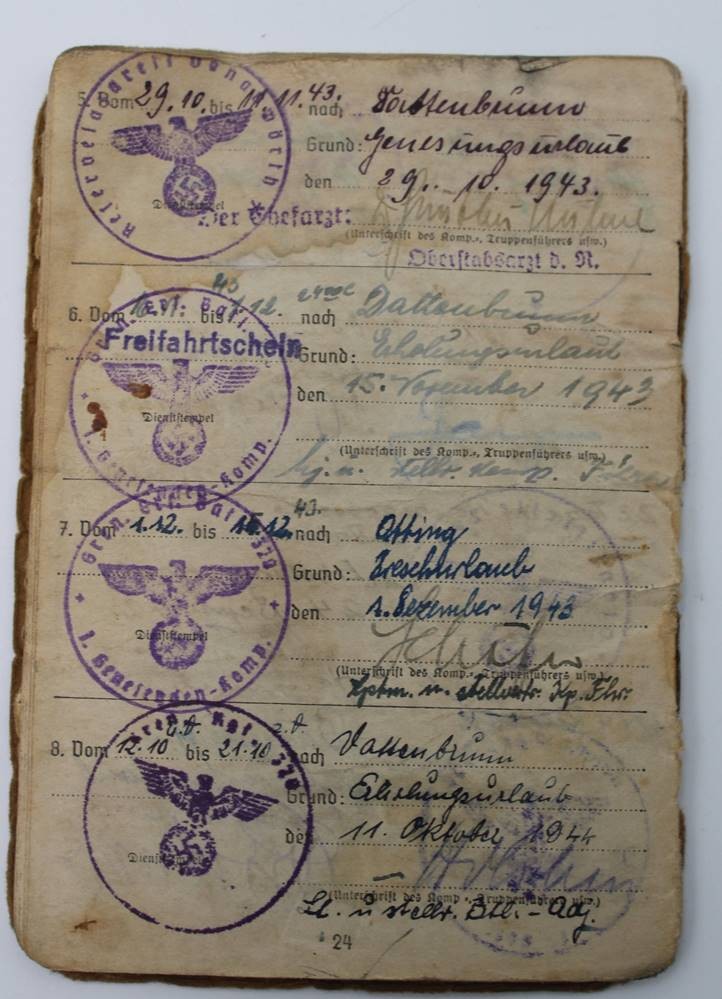 Reservelazarett Donauwörth
5. Vom 29.10. bis 11.11.43. nach Tattenbrunn
Grund: Genesungsurlaub
den 29. 10. 1943.
Dienststempel
Der Chefarzt:
(Unterschrift des Komp.-, Truppenführers usw.)
Oberstabsarzt d. R.
6. Vom 16.11. 43 bis 1.12. nach Dattenbrunn
Freifahrtschein
Grund: Erholungsurlaub
den 15. November 1943
Dienststempel
(Unterschrift des Komp.-, Truppenführers usw.)
1. Genesenden-Komp.
7. Vom 1.12. bis 15.12. 43. nach Otting
Gren. Ers. Batl. 320
Grund: Dreschurlaub
den 1. Dezember 1943
Dienststempel
(Unterschrift des Komp.-, Truppenführers usw.)
1. Genesenden-Komp.
Hptm. u. stellvertr. Kp. Fhr.
8. Vom 12.10 bis 21.10 nach Dattenbrunn
320
Grund: Erholungsurlaub
den 11. Oktober 1944
Dienststempel
(Unterschrift des Komp.-, Truppenführers usw.)
Lt. u stellv. Btl.-Adj.
24